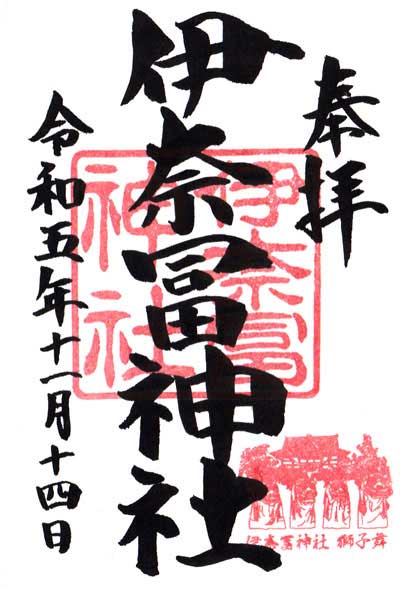 奉拝
伊奈冨神社
伊奈冨
神社
令和五年十一月十四日
伊奈冨神社 獅子舞